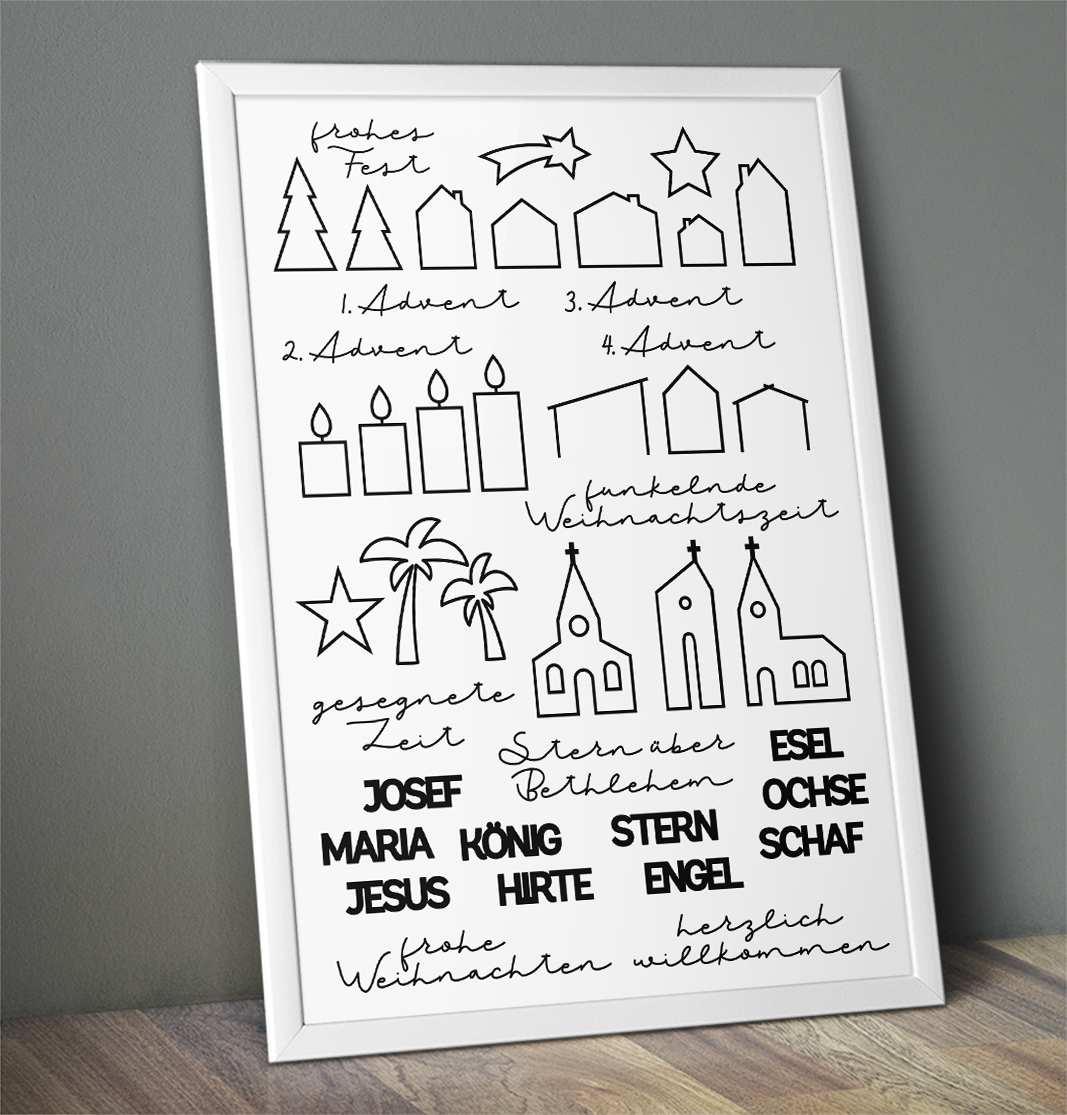 frohes
Fest
1. Advent
3. Advent
2. Advent
4. Advent
funkelnde
Weihnachtszeit
gesegnete
Zeit
Stern über
Bethlehem
ESEL
JOSEF
OCHSE
MARIA
KÖNIG
STERN
SCHAF
JESUS
HIRTE
ENGEL
frohe
Weihnachten
herzlich
willkommen